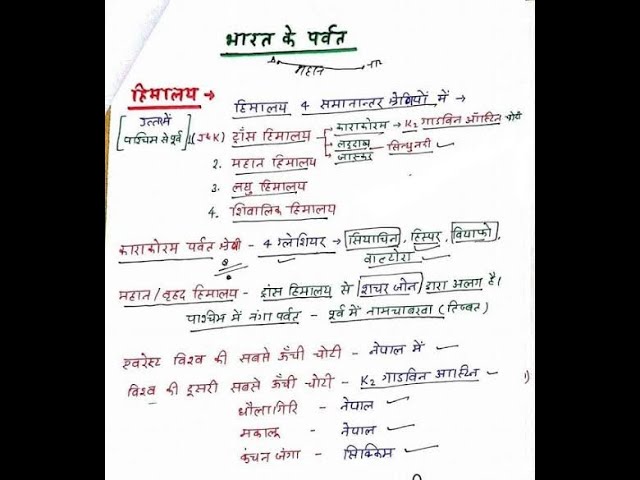 भारत के पर्वत
महान
हिमालय → हिमालय 4 समानान्तर श्रेणियों में →
[उत्तर में पश्चिम से पूर्व]
1. (J&K) ट्राँस हिमालय → काराकोरम → K2 गाडविन ऑस्टिन चोटी
→ लद्दाख
→ जास्कर सिन्धु नदी
2. महान हिमालय
3. लघु हिमालय
4. शिवालिक हिमालय
काराकोरम पर्वत श्रेणी - 4 ग्लेशियर → सियाचिन, हिस्पर, वियाफो,
वालटोरा
महान/वृहद हिमालय - ट्राँस हिमालय से शचर जोन द्वारा अलग है।
पाश्चिम में नंगा पर्वत - पूर्व में नामचाबरवा (तिब्बत)
एवरेस्ट विश्व की सबसे ऊँची चोटी - नेपाल में
विश्व की दूसरी सबसे ऊँची चोटी - K2 गाडविन ऑस्टिन
धौलागिरि - नेपाल
मकालू - नेपाल
कंचन जंगा - सिक्किम